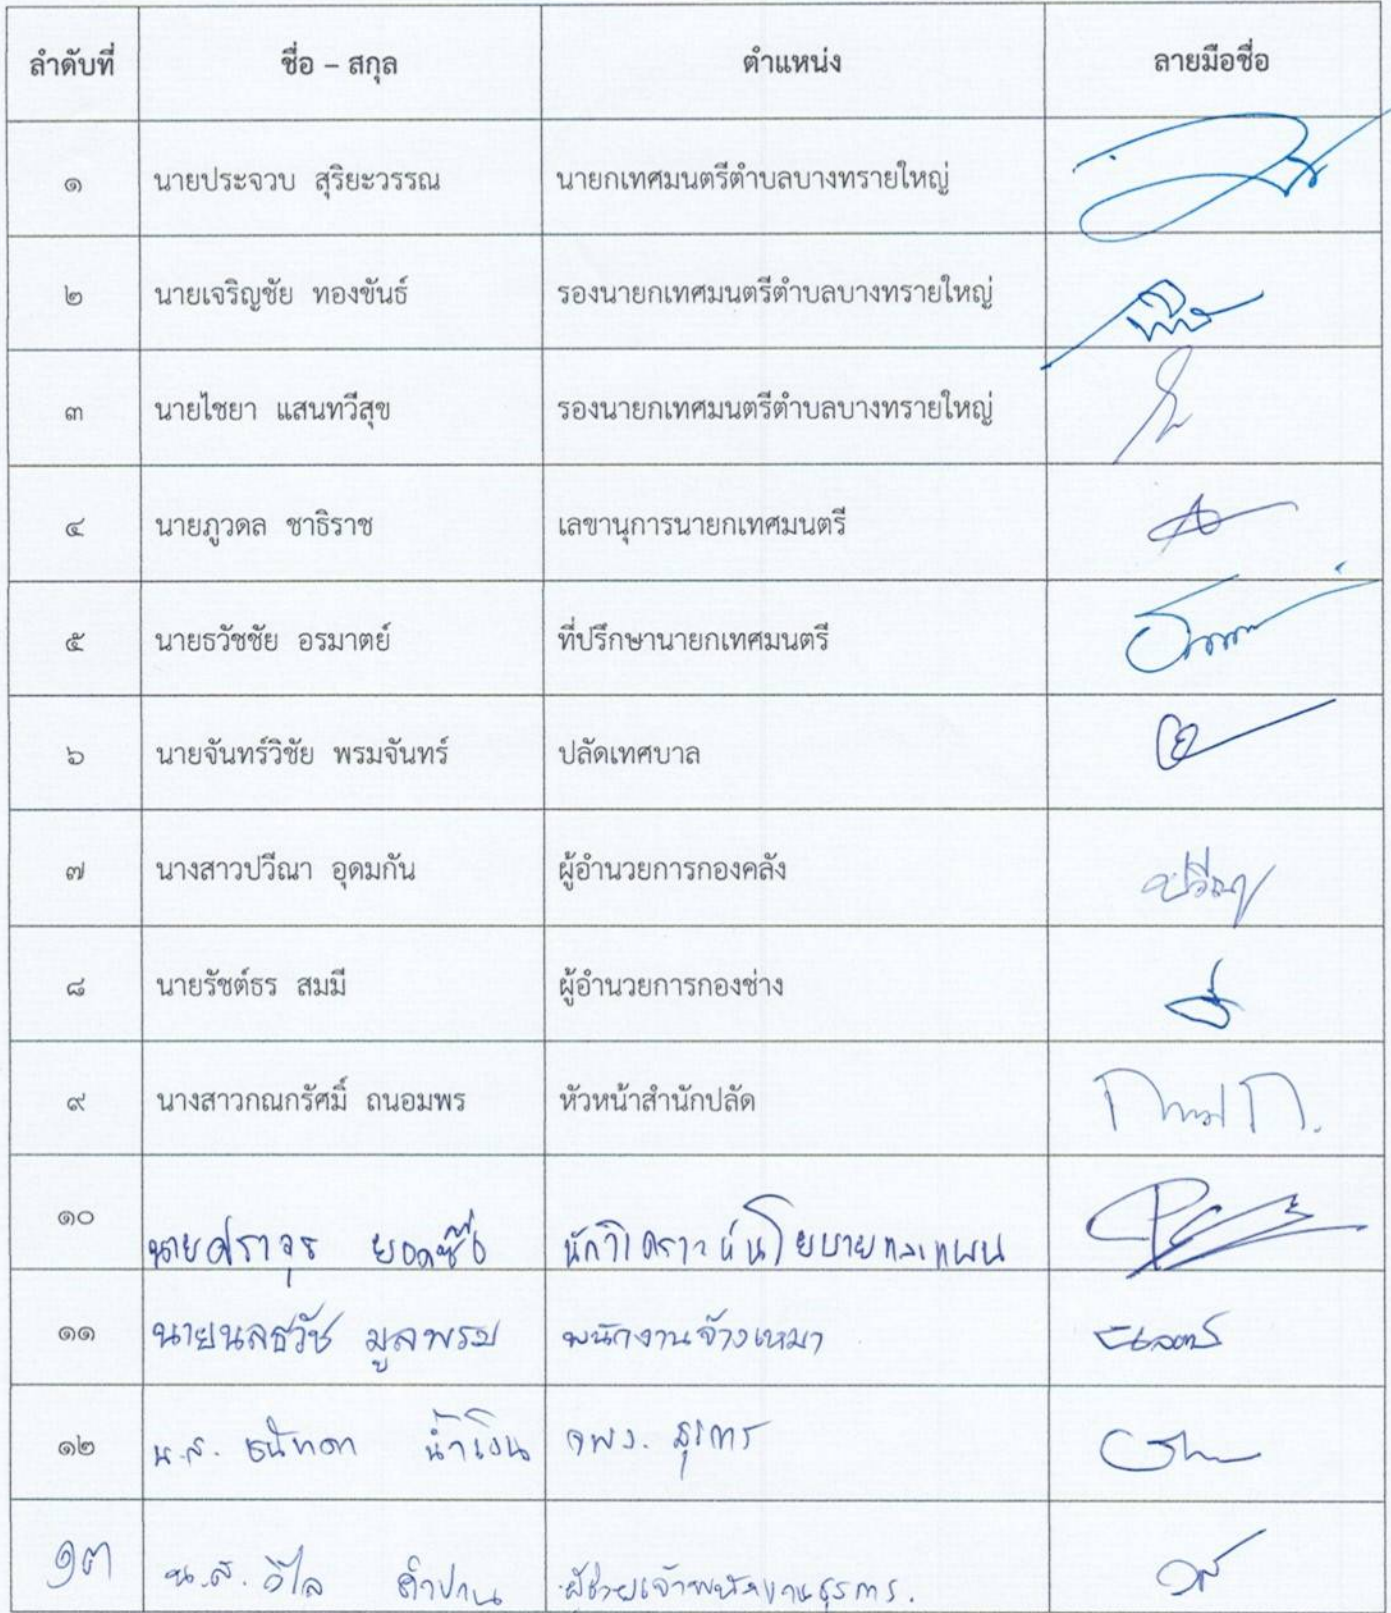 ลำดับที่ ชื่อ – สกุล ตำแหน่ง ลายมือชื่อ
๑ นายประจวบ สุริยะวรรณ นายกเทศมนตรีตำบลบางทรายใหญ่
๒ นายเจริญชัย ทองขันธ์ รองนายกเทศมนตรีตำบลบางทรายใหญ่
๓ นายไชยา แสนทวีสุข รองนายกเทศมนตรีตำบลบางทรายใหญ่
๔ นายภูวดล ชาธิราช เลขานุการนายกเทศมนตรี
๕ นายธวัชชัย อรมาตย์ ที่ปรึกษานายกเทศมนตรี
๖ นายจันทร์วิชัย พรมจันทร์ ปลัดเทศบาล
๗ นางสาวปวีณา อุดมกัน ผู้อำนวยการกองคลัง ปวีณา
๘ นายรัชต์ธร สมมี ผู้อำนวยการกองช่าง
๙ นางสาวกณกรัศมิ์ ถนอมพร หัวหน้าสำนักปลัด
๑๐ นักวิเคราะห์นโยบายและแผน
๑๑ นายนลธวัช มูลพรม พนักงานจ้างเหมา
๑๒ น.ส. น้ำเงิน จพง. ธุรการ
๑๓ น.ส. วิไล ผู้ช่วยเจ้าพนักงานธุรการ.